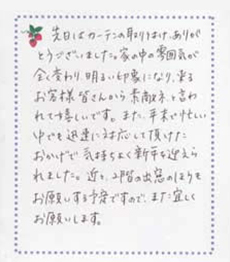 先日はカーテンの取り付けありが
とうございました。家の中の雰囲気が
全く変わり、明るい印象になり、来る
お客様皆さんから素敵ネと言わ
れて嬉しいです。また、年末で忙しい
中でも迅速に対応して頂けた
おかげで気持ちよく新年を迎えら
れました。近々、2階の出窓のほうも
お願いする予定ですので、また宜しく
お願いします。